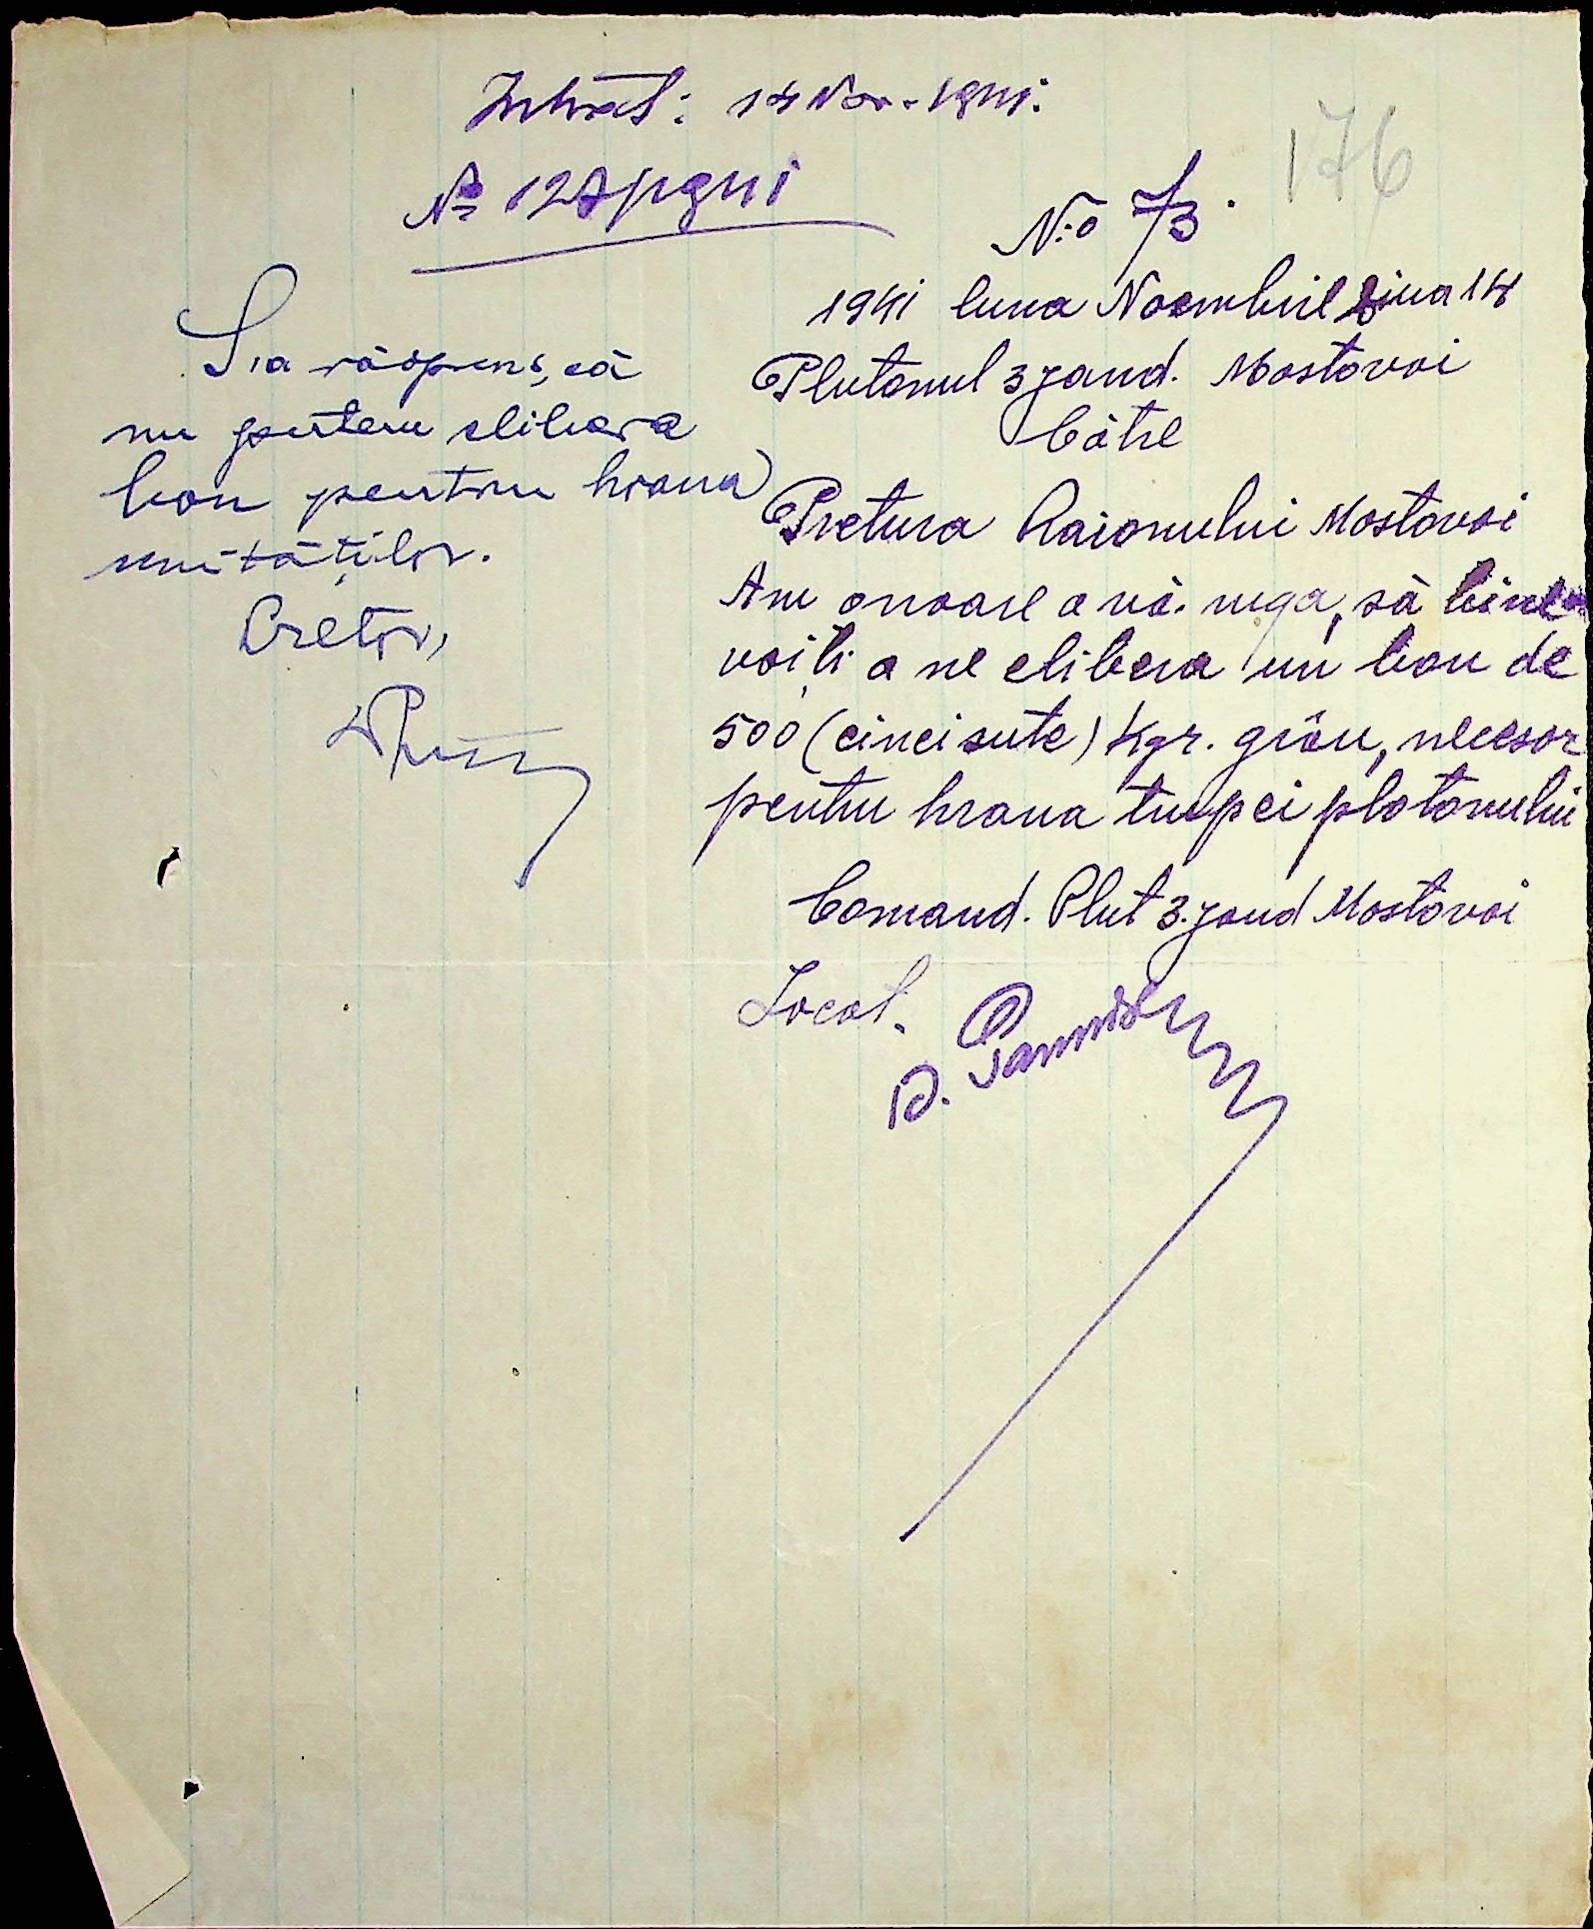 Intrat: 14 Nov. 1941.
№ 127/1941
176
N:o 73.
1941 luna Noembrie ziua 14
Plutonul 3 jand. Mostovoi
Către
Pretura Raionului Mostovoi
Am onoare a vă ruga, să bine
voiți a ne elibera un bon de
500 (cinci sute) Kgr. grâu, necesar
pentru hrana trupei plotonului
Comand. Plut 3. jand Mostovoi
Local.
S'a răspuns, că
nu putem elibera
bon pentru hrana
unităților.
Pretor,